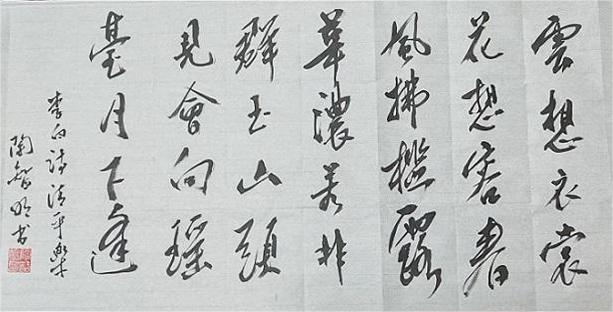 雲想衣裳
花想容春
風拂檻露
華濃若非
群玉山頭
見會向瑤
臺月下逢
李白詩清平樂
陶智明书